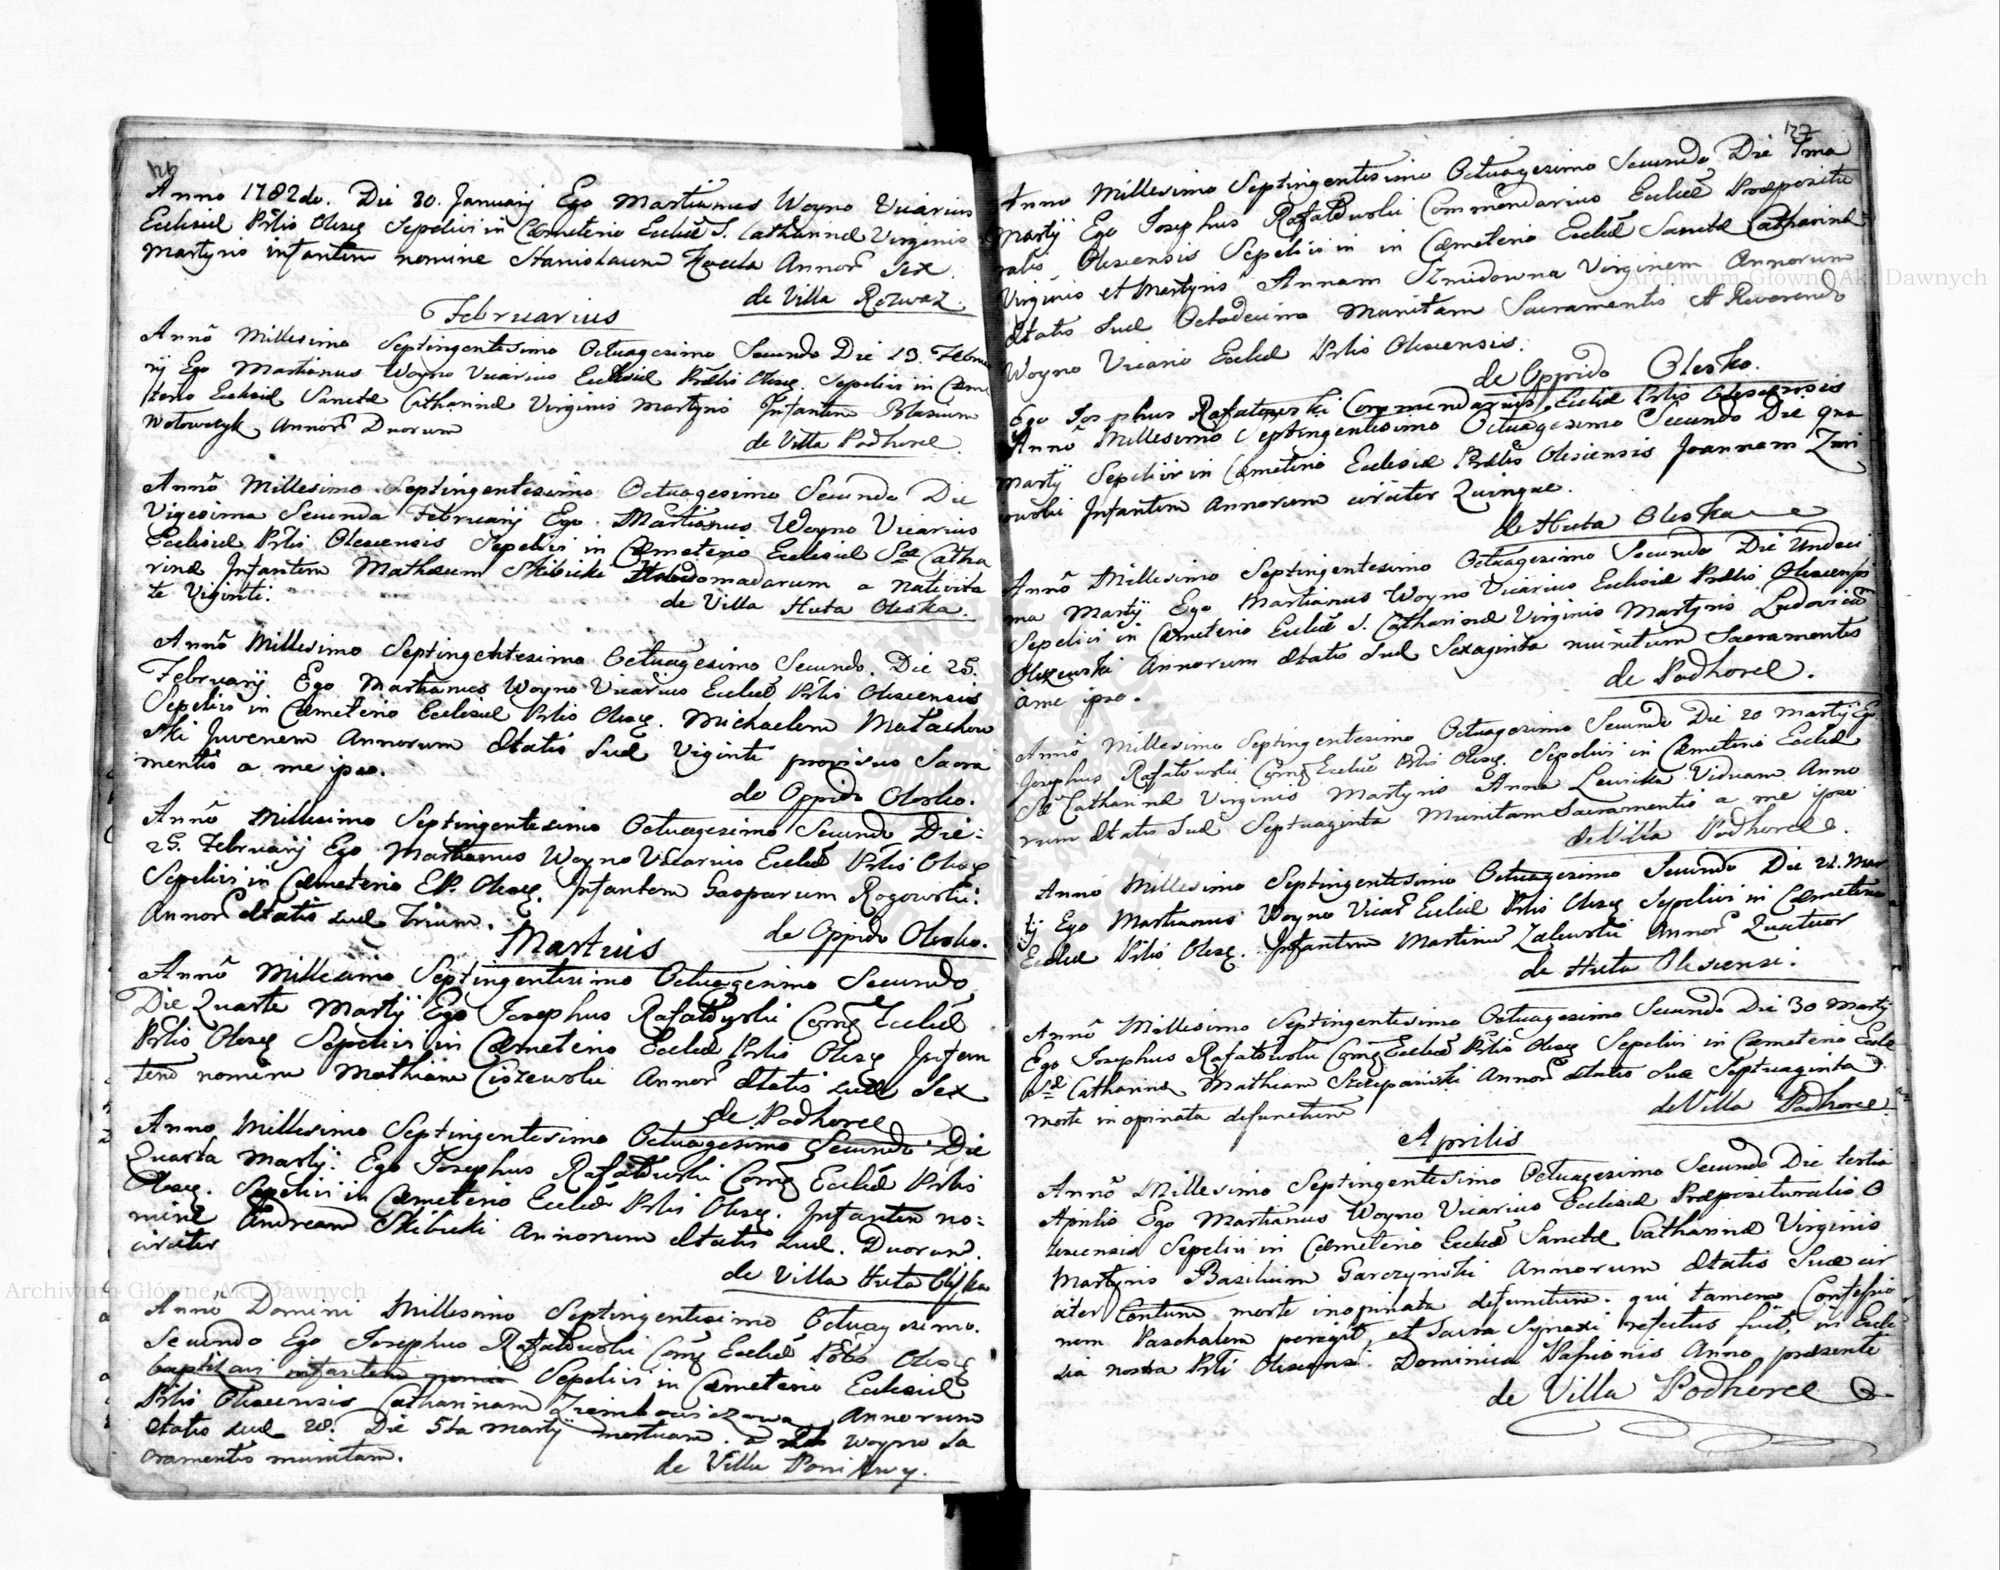 126
Anno 1782do. Die 20. Januarij Ego Martianus Woyno Vicarius
Ecclesiæ Prlis Olesc. Sepelivi in Cæmeterio Eccliæ S. Catharinæ Virginis
Martyris infantem nomine Stanislaum Annor̄ Sex.
de Villa Rozwaz.
Februarius
Annō Millesimo Septingentesimo Octuagesimo Secundo Die 13. Febru
rij Ego Martianus Woyno Vicarius Ecclesiæ Prlis Olesc. Sepelivi in Cæme
terio Ecclesiæ Sanctæ Catharinæ Virginis Martyris Infantem Blasium
Wotowczyk Annor̄ Duorum
de Villa Podhorce.
Annō Millesimo Septingentesimo Octuagesimo Secundo Die
Vigesima Secunda Februarij Ego Martianus Woyno Vicarius
Ecclesiæ Prlis Olescensis Sepelivi in Cæmeterio Ecclesiæ Stæ Catha
rinæ Infantem Mathæum Skibicki Hebdomadarum a nativita
te Viginti.
de Villa Huta Oleska.
Annō Millesimo Septingentesimo Octuagesimo Secundo. Die 25.
Februarij Ego Martianus Woyno Vicarius Eccliæ Prlis Olescensis
Sepelivi in Cæmeterio Ecclesiæ Prlis Olesc. Michaelem Matachow
ski Juvenem Annorum ætatis suæ Viginti provisus Sacra
mentis a me ipso.
de Oppido Olesko.
Annō Millesimo Septingentesimo Octuagesimo Secundo Die:
25. Februarij Ego Martianus Woyno Vicarius Eccliæ Prlis Olesc
Sepelivi in Cæmeterio EP. Olesc. Infantem Gasparum Rogowski:
Annor̄ ætatis suæ Trium.
de Oppido Olesko.
Martius
Annō Millesimo Septingentesimo Octuagesimo Secundo
Die Quarta Martij Ego Josephus Rafatowski Com̄ Eccliæ
Prlis Olesc Sepelivi in Cæmeterio Eccliæ Prlis Olesc Infan
tem nomine Mathiam Ciszewski Annor̄ ætatis suæ Sex
de Podhorce
Anno Millesimo Septingentesimo Octuagesimo Secundo Die
Quarta Martij. Ego Josephus Rafatowski Com̄ Eccliæ Prlis
Olesc. Sepelivi in Cæmeterio Eccliæ Prlis Olesc. Infantem no=
mine Andream Skibicki Annorum ætatis suæ. Duorum.
circiter
de Villa Huta Oleska
Annō Domini Millesimo Septingentesimo Octuagesimo.
Secundo Ego Josephus Rafatowski Com̄ Eccliæ Prlis Olesc
baptizavi infantem nomine Sepelivi in Cæmeterio Ecclesiæ
Prlis Olescensis Catharinam Annorum
ætatis suæ 28. Die 5ta Martij mortuam. a Woyno Sa
cramentis munitam.
de Villa
127
Anno Millesimo Septingentesimo Octuagesimo Secundo Die 1ma
Martij Ego Josephus Rafatowski Commendarius Eccliæ Præpositu
ralis Olescensis Sepelivi in in Cæmeterio Eccliæ Sanctæ Catharinæ
Virginis et Martyris Annam Szmidowna Virginem Annorum
ætatis suæ Octodecim Munitam Sacramentis A Reverendo
Woyno Vicario Eccliæ Prlis Olescensis.
de Oppido Olesko.
Ego Josephus Rafatowski Commendarius Eccliæ Prlis Olescensis
Annō Millesimo Septingentesimo Octuagesimo Secundo Die
Martij Sepelivi in Cæmeterio Ecclesiæ Prlis Olescensis Joannem
Infantem Annorum circiter Quinque.
de Huta Oleska
Annō Millesimo Septingentesimo Octuagesimo Secundo Die Undeci
ma Martij Ego Martianus Woyno Vicarius Ecclesiæ Prlis Olescensis
Sepelivi in Cæmeterio Eccliæ S. Catharinæ Virginis Martyris Ludovicū
Olszewski Annorum ætatis suæ Sexaginta munitum Sacramentis
âme ipso.
de Podhorce.
Annō Millesimo Septingentesimo Octuagesimo Secundo Die 20 Martij Ego
Josephus Rafatowski Com̄ Eccliæ Prlis Olesc. Sepelivi in Cæmeterio Eccliæ
Stæ Catharinæ Virginis Martyris Anna Lewicka Viduam Anno
rum ætatis suæ Septuaginta Munitam Sacramentis a me ipso
de Villa Podhorce.
Annō Millesimo Septingentesimo Octuagesimo Secundo Die 22. Mar
tij Ego Martianus Woyno Vicar̄ Eccliæ Prlis Olesc Sepelivi in Cæmeterio
Eccliæ Prlis Olesc. Infantem Martinū Zalewski Annor̄ Quatuor
de Huta Olescensi.
Annō Millesimo Septingentesimo Octuagesimo Secundo Die 30 Martij
Ego Josephus Rafatowski Com̄ Eccliæ Prlis Olesc Sepelivi in Cæmeterio Eccle
Stæ Catharinæ Mathiam Szczepański Annor̄ ætatis suæ Septuaginta
morte inopinata defunctum
de Villa Podhorce.
Aprilis
Annō Millesimo Septingentesimo Octuagesimo Secundo Die tertia
Aprilis Ego Martianus Woyno Vicarius Ecclesiæ Præposituralis O
lescensis Sepelivi in Cæmeterio Eccliæ Sanctæ Catharinæ Virginis
Martyris Basilium Garczynski Annorum ætatis Suæ cir
citer Centum morte inopinata defunctum. qui tamen Confessio
nem Paschalem peregit, et Sacra Synaxi refectus fuit, in Eccle
sia nostra Prli Olescensi. Dominica Passionis Anno præsente
de Villa Podhorce
Archiwum Główne Akt Dawnych
Archiwum Główne Akt Dawnych